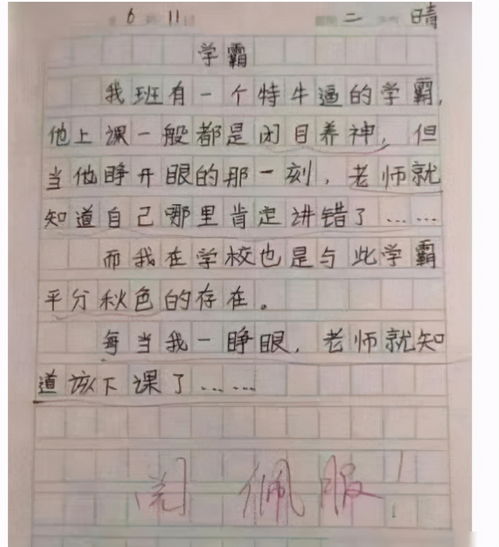 6 11 二 晴
学霸
我班有一个特牛逼的学霸,
他上课一般都是闭目养神, 但
当他睁开眼的那一刻, 老师就
知道自己哪里肯定讲错了……
而我在学校也是与此学霸
平分秋色的存在。
每当我一睁眼, 老师就知
道该下课了……
阅 佩服!